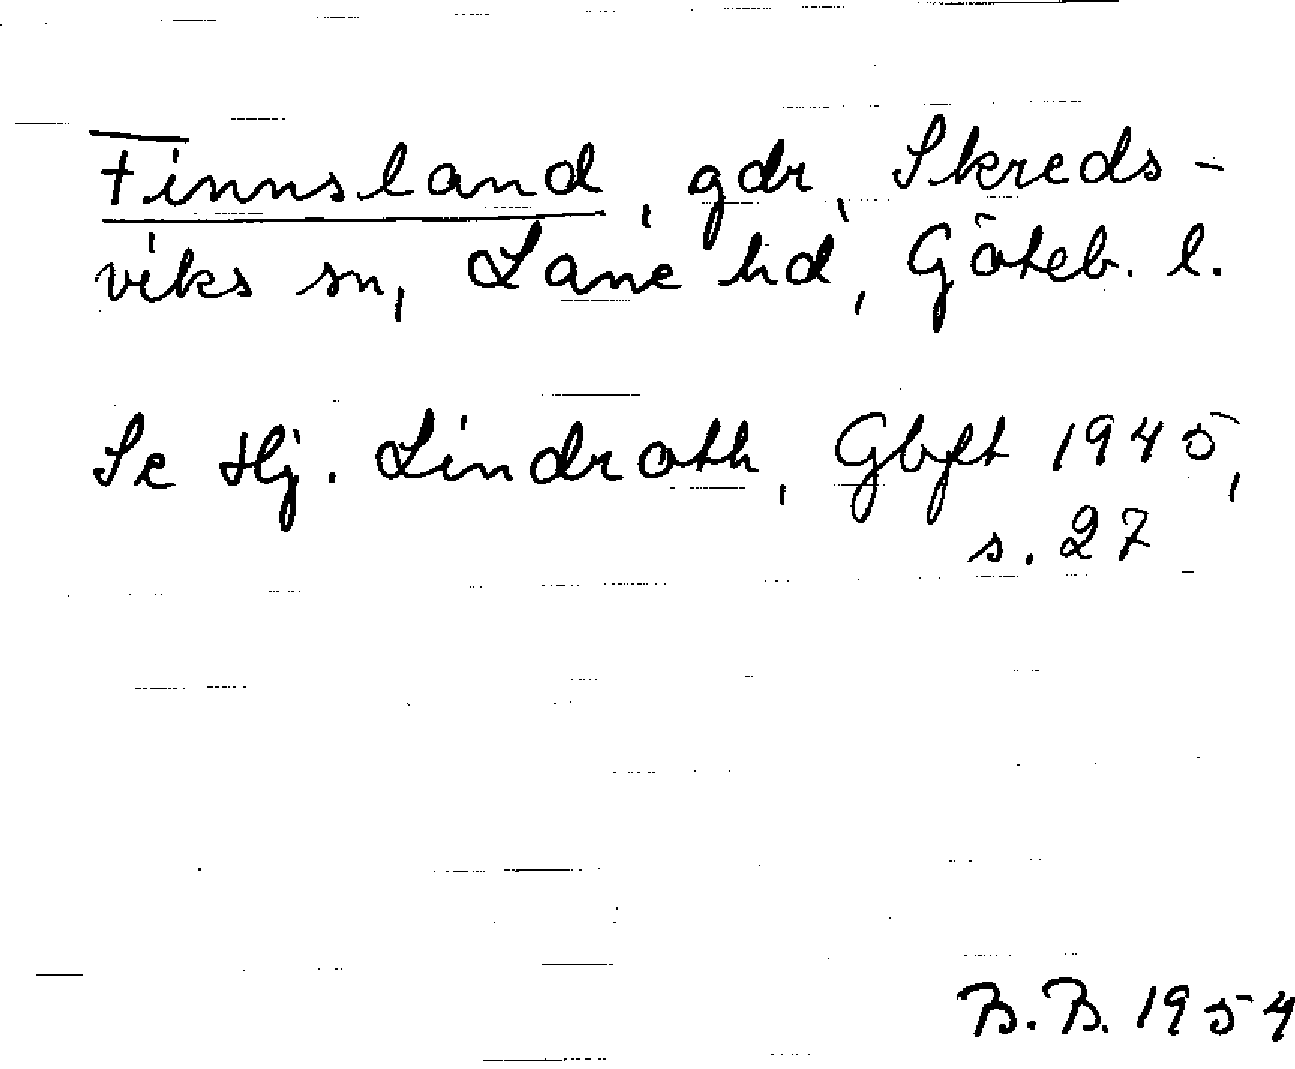 Finnsland, gdr, Skreds-
viks sn, Lane hd, Göteb. l.
Se Hj. Lindroth, Gbgft 1945,
s. 27
B. B. 1954